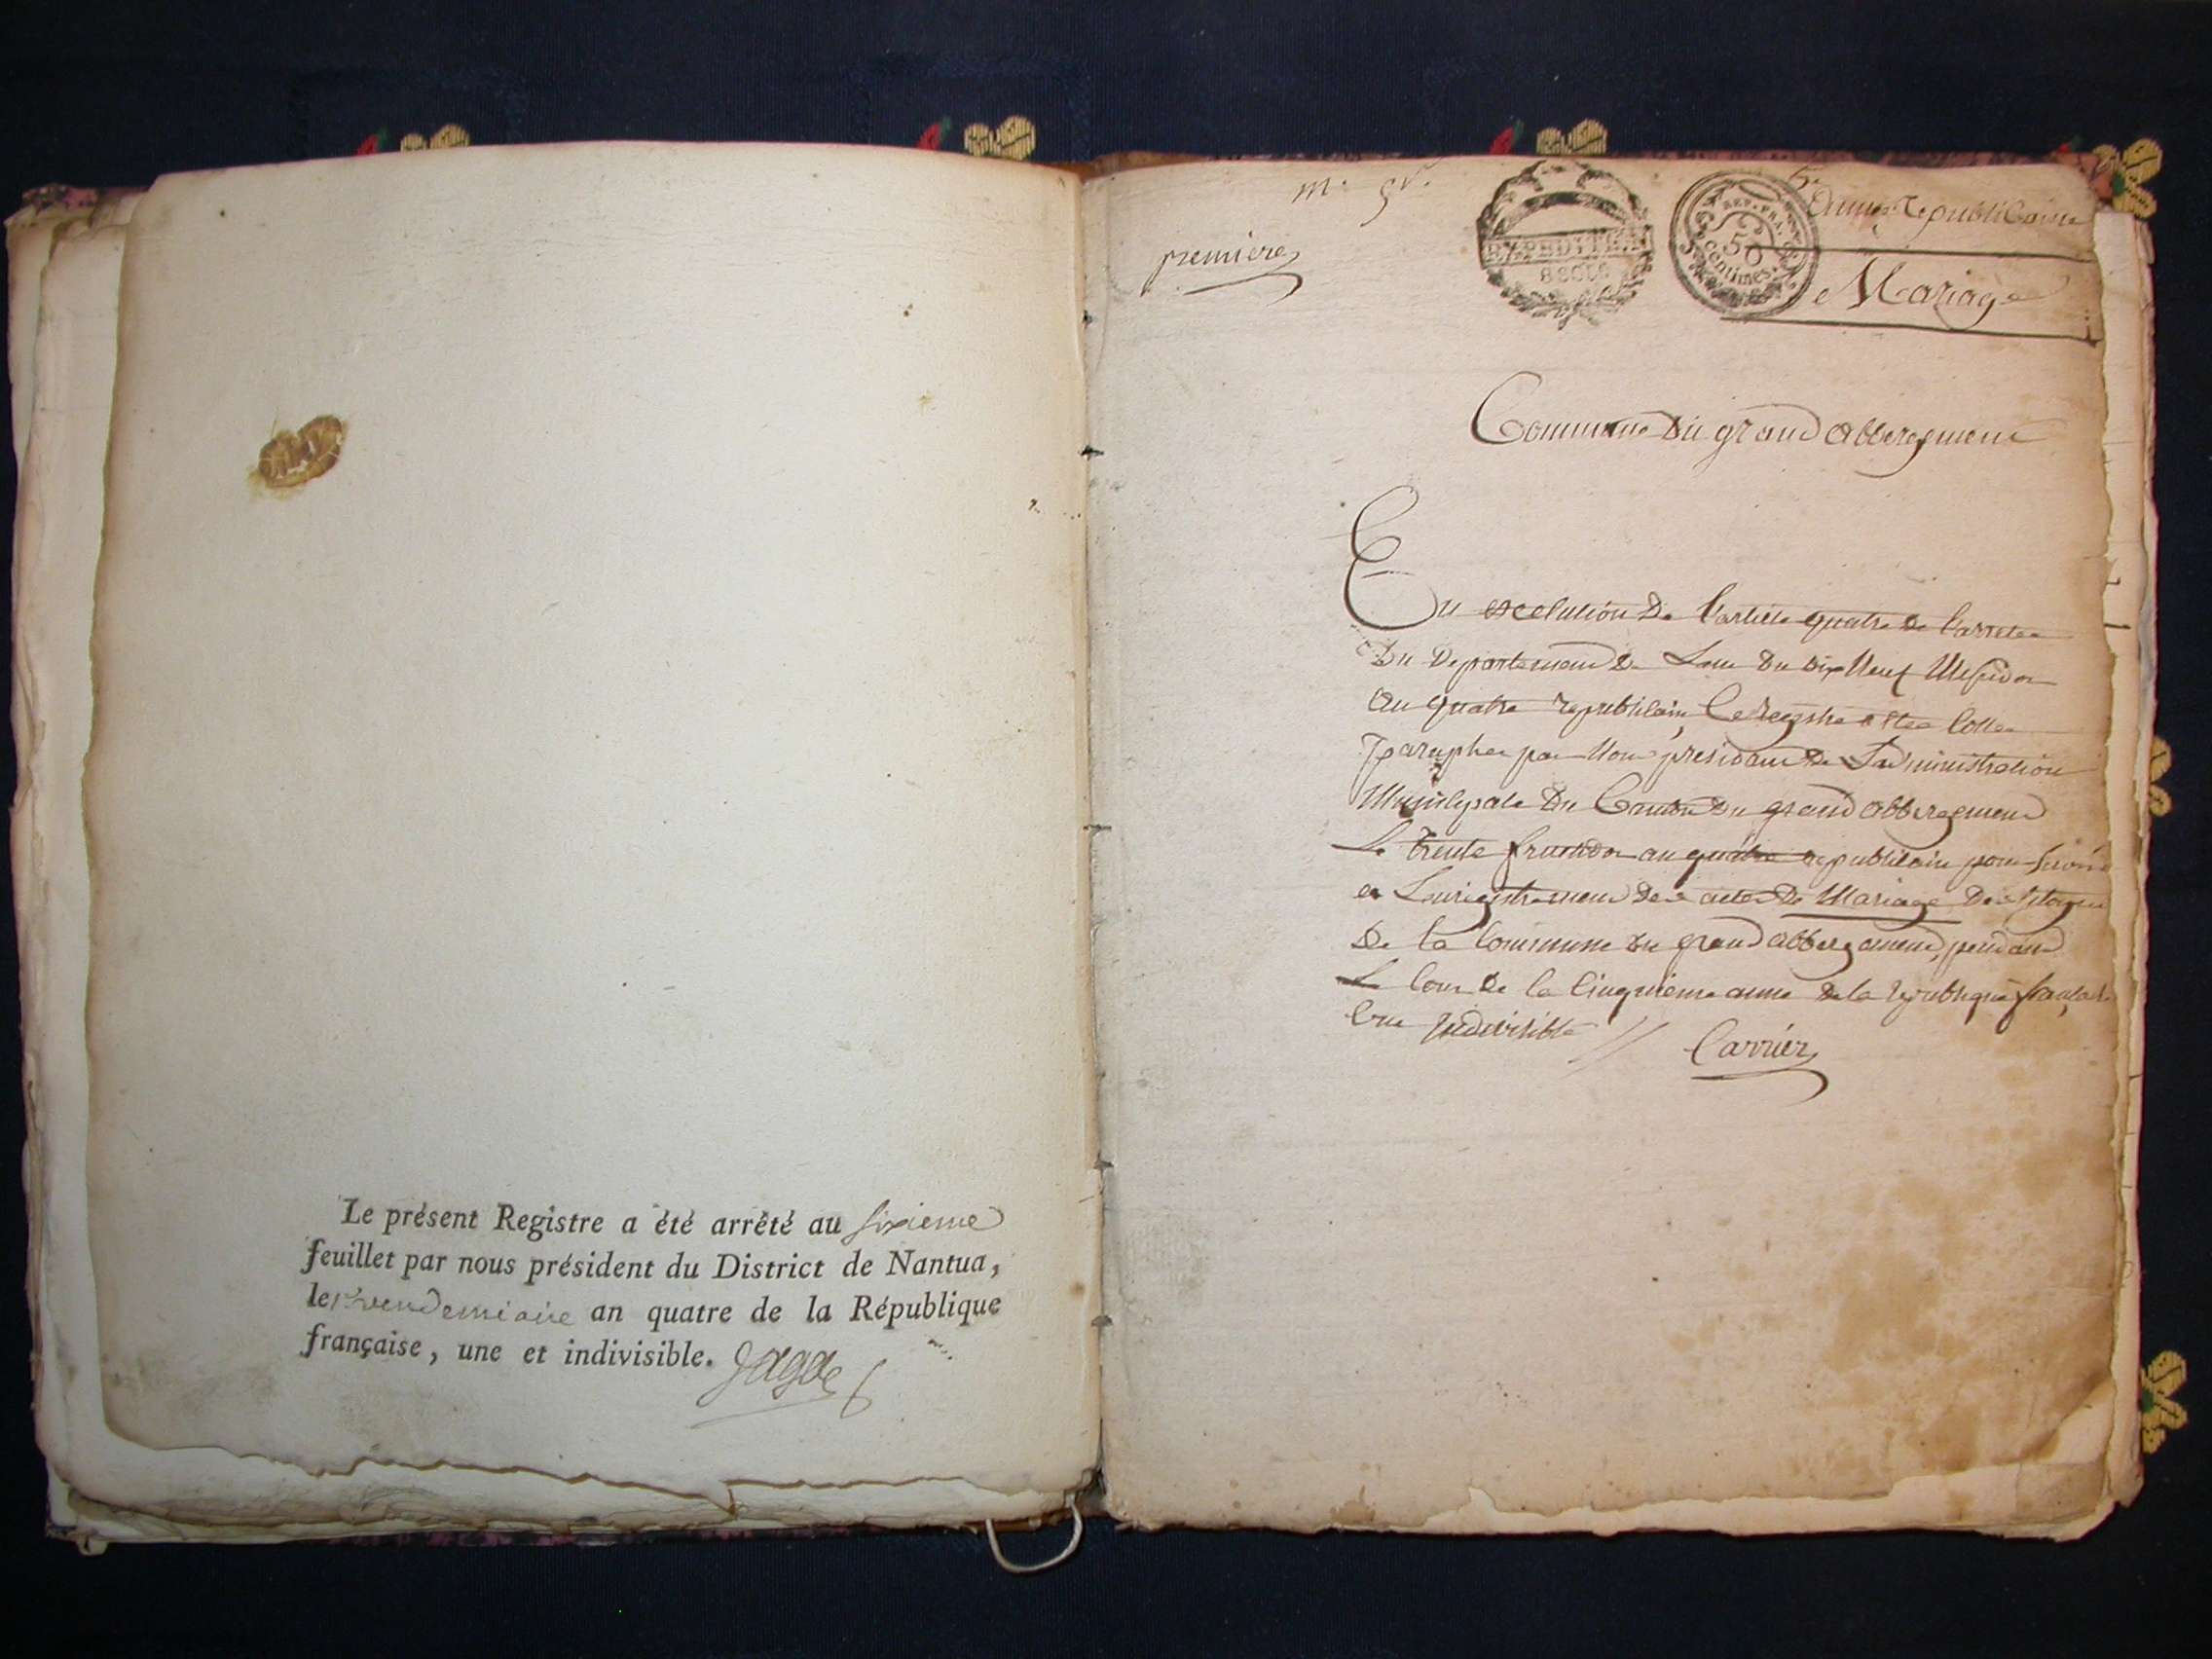 Le présent Registre a été arrêté au sixieme
feuillet par nous président du District de Nantua,
le vendemiaire an quatre de la République
française, une et indivisible.
m.
premiere
EXPEDITION
8 SOLS
REP. FRA.
50
centimes
5e
année republicaine
Mariage
Commune du grand abbergement
En execution de l'article quatre de l'arretee
Du Departement de Lain du dix Neuf Messidor
an quatre republicain, le registre a etee cottee
parapheé par Nous president de Ladministration
Municipale du Canton du grand abbergement
Le trente fructidor an quatre republicain pour servir
a Lenregistrement des actes de Mariage des citoyens
De la Commune du grand abbergement, pendant
Le cour de la cinquieme année de la republique francaise
une indivisible // Carrier